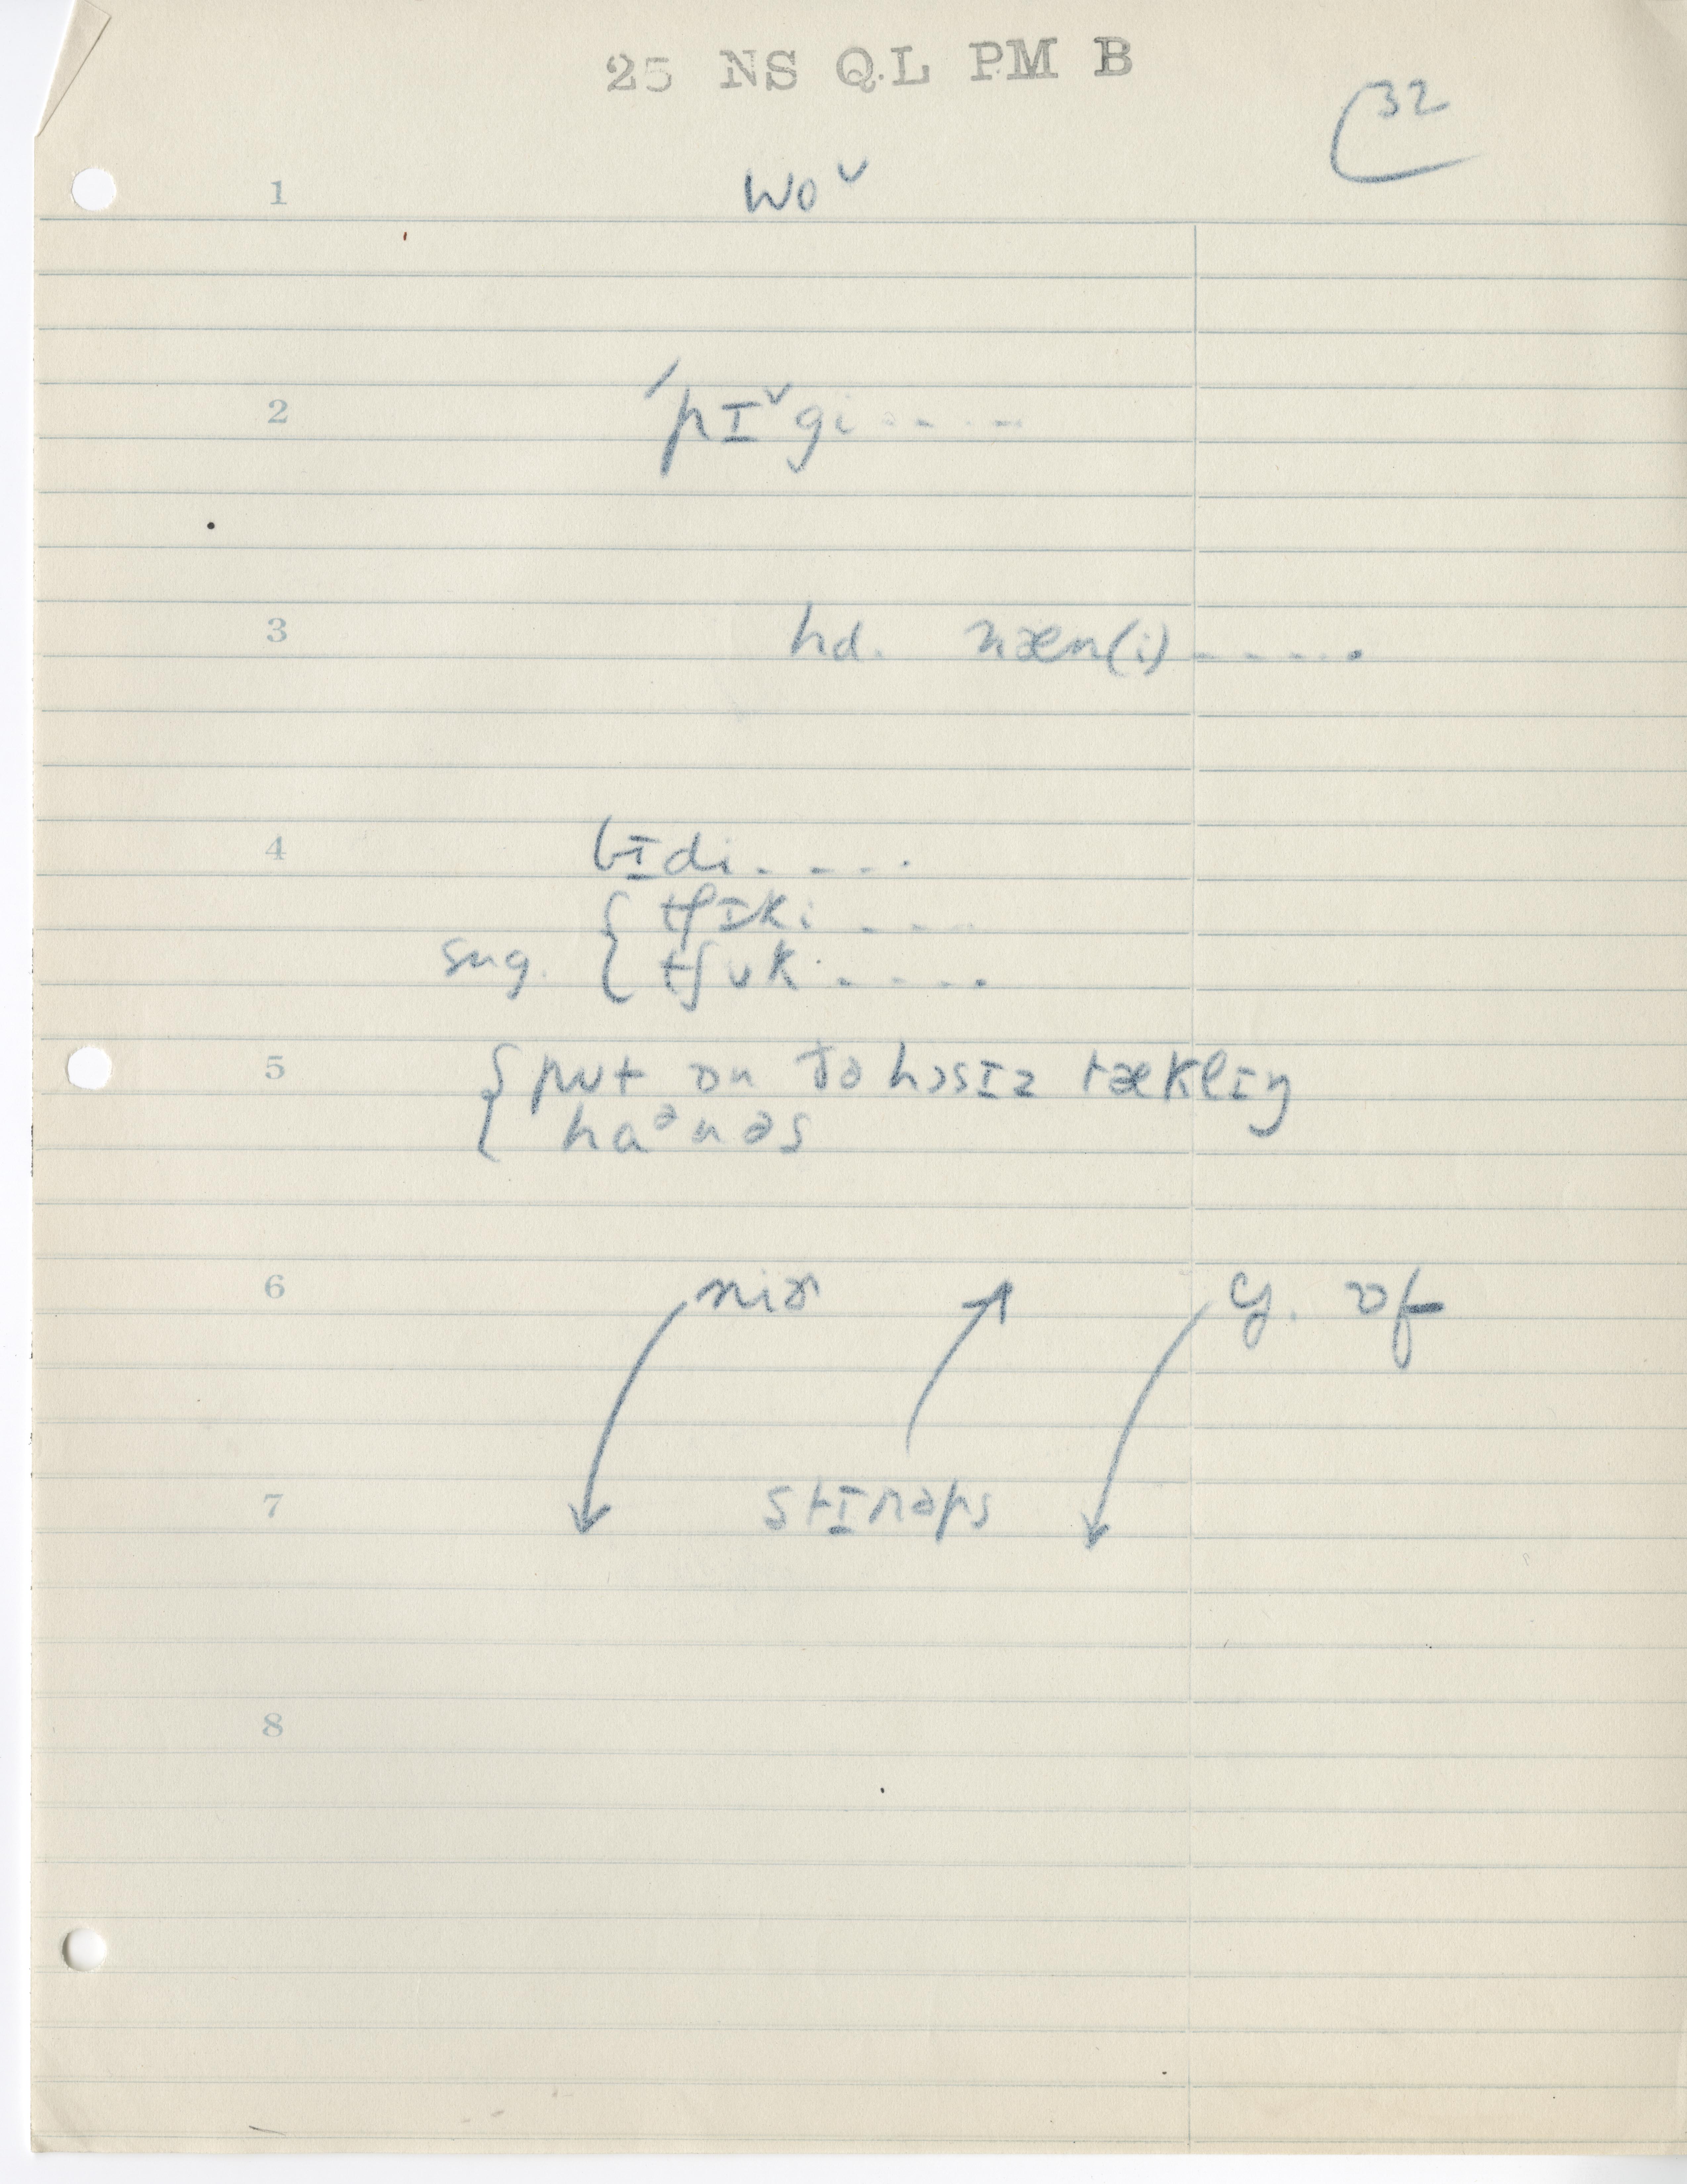 25 NS QL PM B
32
1 woᵛ
2 ˈpɪᵛgi.....
3 hd. næn(i).....
4 bɪdi.....
{ tʃɪki.....
sug. { tʃʊk.....
5 { pʊt ɒn ðə hɔsɪz tæklɪŋ
{ haᵊnəs
6 niɚ ɒf
7 stɪrəps
8